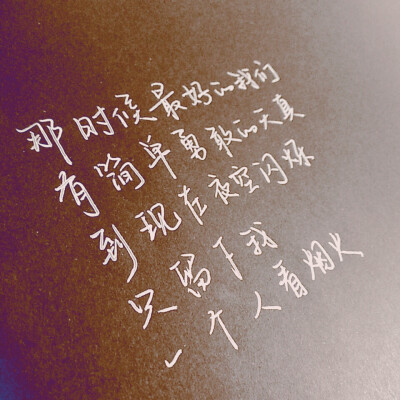 那时候最好的我们
有简单勇敢的天真
到现在夜空闪烁
只留下我
一个人看烟火